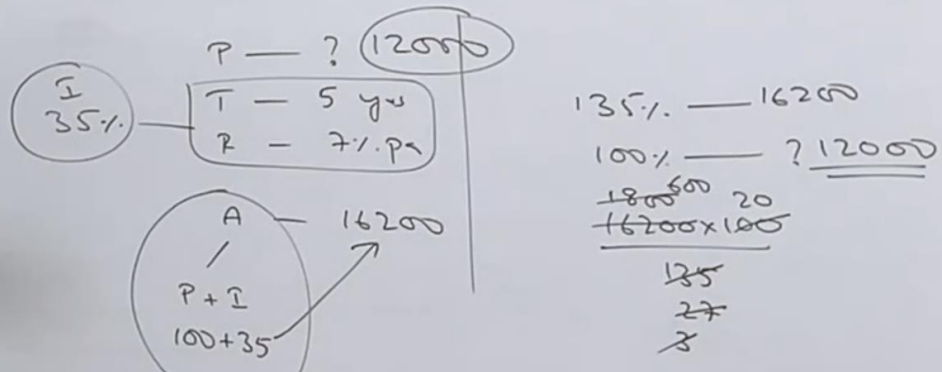 P — ? 12000
I
35%
T — 5 yrs
R — 7% pa
A — 16200
/
P + I
100+35
135% — 16200
100% — ? 12000
1800 600 20
16200×100
135
27
3